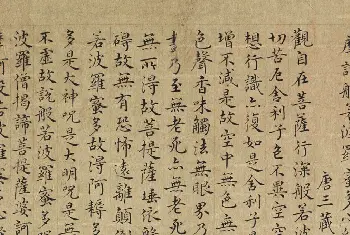 唐三藏
觀自在菩薩行深般若波
切苦厄舍利子色不異空空
想行識亦復如是舍利子是
增不減是故空中無色無
色聲香味觸法無眼界乃
乃至無老死亦無老死
無所得故菩提薩埵依般
礙故無有恐怖遠離顛倒
若波羅蜜多故得阿耨多
多是大神咒是大明咒是無
不虛故說般若波羅蜜多
波羅僧揭諦菩提薩婆訶
般若波羅蜜多心